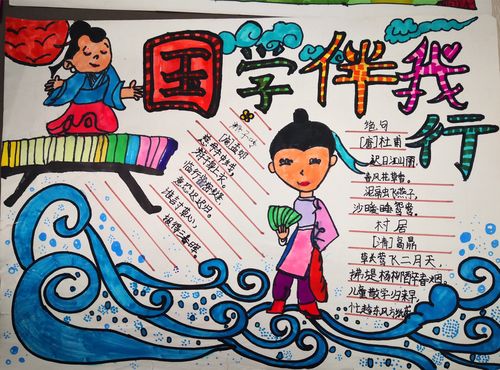 国学伴我行
游子吟
[唐]孟郊
慈母手中线,
游子身上衣。
临行密密缝,
意恐迟迟归。
谁言寸草心,
报得三春晖。
绝句
[唐]杜甫
迟日江山丽,
春风花草香。
泥融飞燕子,
沙暖睡鸳鸯。
村居
[清]高鼎
草长莺飞二月天,
拂堤杨柳醉春烟。
儿童散学归来早,
忙趁东风放纸鸢。